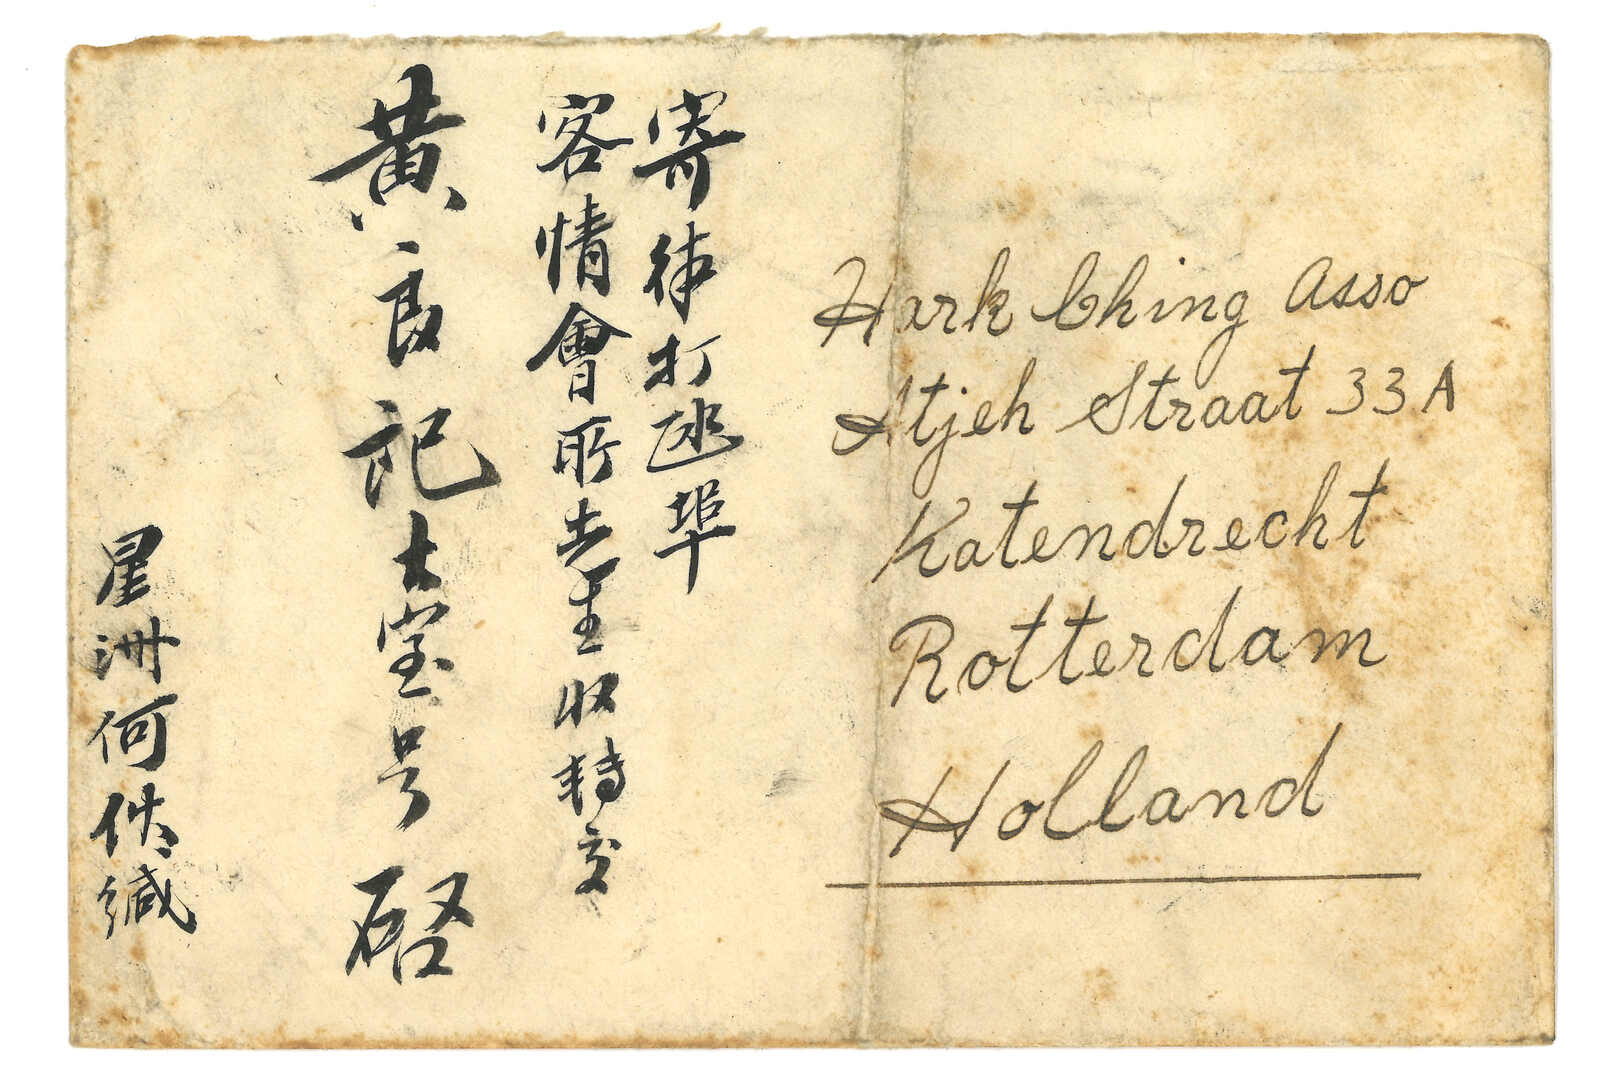 寄律打逑埠
客情會所先生收轉交
黃良記大宝号 啓
星洲何佚緘
Hark Ching Asso
Atjeh Straat 33A
Katendrecht
Rotterdam
Holland